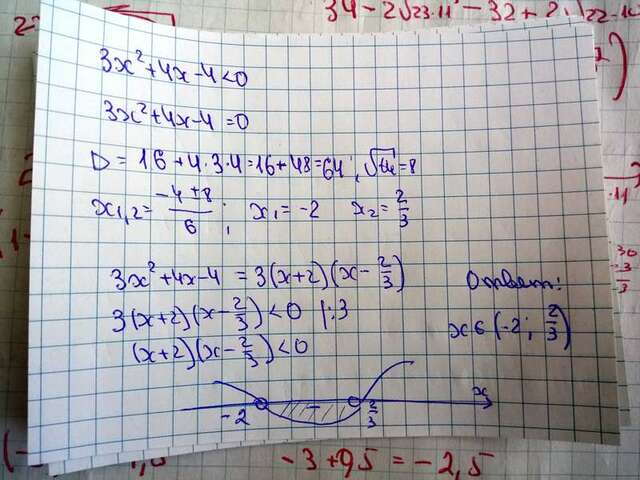 3x² + 4x - 4 < 0
3x² + 4x - 4 = 0
D = 16 + 4·3·4 = 16 + 48 = 64; √64 = 8
x₁,₂ = (-4 ± 8)/6; x₁ = -2 x₂ = 2/3
3x² + 4x - 4 = 3(x + 2)(x - 2/3)
3(x + 2)(x - 2/3) < 0 |:3
(x + 2)(x - 2/3) < 0
-2 - 2/3 x
x ∈ (-2; 2/3)
34 - 2√23.11
-3 + 95 = -2,5